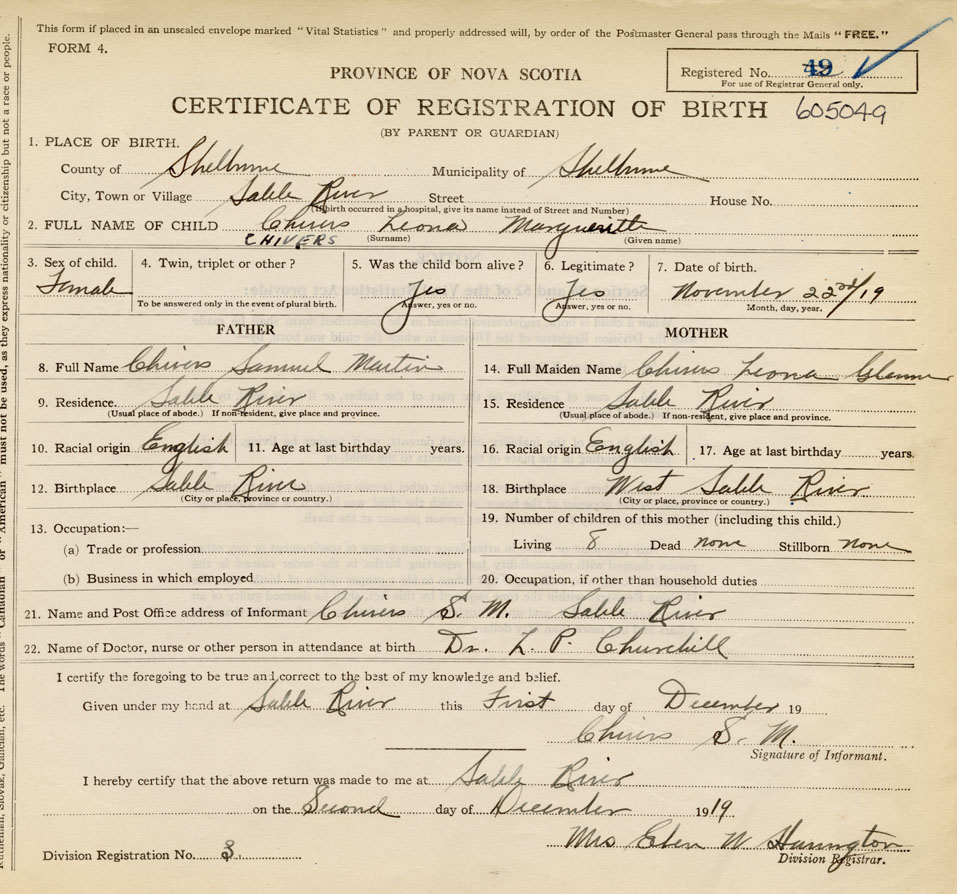 This form if placed in an unscaled envelope marked "Vital Statistics" and properly addressed will, by order of the Postmaster General pass through the Mails "FREE."
FORM 4.
Registered No. 49
For use of Registrar General only.
PROVINCE OF NOVA SCOTIA
CERTIFICATE OF REGISTRATION OF BIRTH 605049
(BY PARENT OR GUARDIAN)
1. PLACE OF BIRTH.
County of Shelburne Municipality of Shelburne
City, Town or Village Sable River Street House No.
(If birth occurred in a hospital, give its name instead of Street and Number)
2. FULL NAME OF CHILD Chivers Leona Marguerite
CHIVERS (Surname) (Given name)
3. Sex of child. Female
4. Twin, triplet or other?
To be answered only in the event of plural birth.
5. Was the child born alive? Yes
Answer, yes or no.
6. Legitimate? Yes
Answer, yes or no.
7. Date of birth. November 22nd/19
Month, day, year.
FATHER
8. Full Name Chivers Samuel Martin
9. Residence. Sable River
(Usual place of abode.) If non-resident, give place and province.
10. Racial origin English 11. Age at last birthday years.
12. Birthplace Sable River
(City or place, province or country.)
13. Occupation:—
(a) Trade or profession
(b) Business in which employed
MOTHER
14. Full Maiden Name Chivers Leona
15. Residence Sable River
(Usual place of abode.) If non-resident, give place and province.
16. Racial origin English 17. Age at last birthday years.
18. Birthplace West Sable River
(City or place, province or country.)
19. Number of children of this mother (including this child.)
Living 8 Dead none Stillborn none
20. Occupation, if other than household duties
21. Name and Post Office address of Informant Chivers S. M. Sable River
22. Name of Doctor, nurse or other person in attendance at birth Dr. L. P. Churchill
I certify the foregoing to be true and correct to the best of my knowledge and belief.
Given under my hand at Sable River this First day of December 19
Chivers S. M.
Signature of Informant.
I hereby certify that the above return was made to me at Sable River
on the Second day of December 1919
Mrs Eben W Harrington
Division Registrar.
Division Registration No. 3.
The words "Canadian" or "American" must not be used, as they express nationality or citizenship but not a race or people.